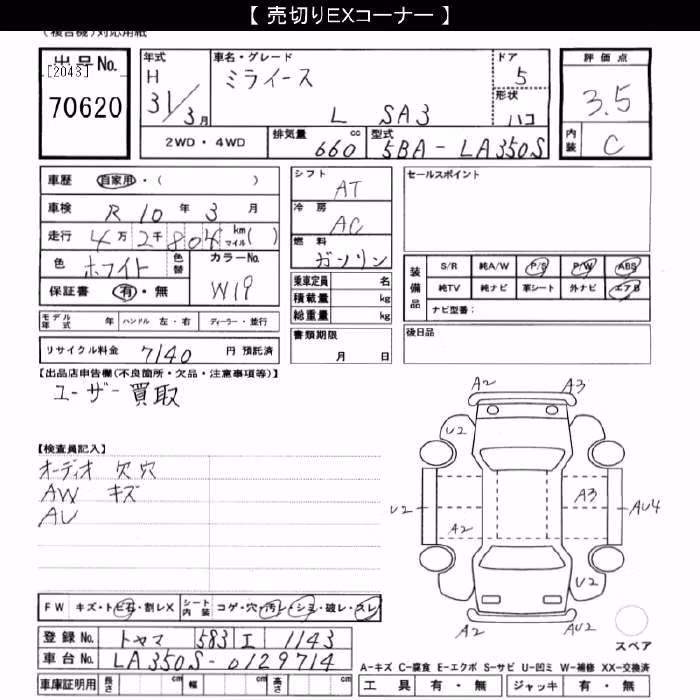 【 売切りEXコーナー 】
(複合機)対応用紙
出品No.
[2043]
70620
年式
H
31/3月
車名・グレード
ミライース
L SA3
ドア
5
形状
ハコ
評価点
3.5
内装
C
2WD・4WD
排気量
660
cc
型式
5BA-LA350S
車歴
自家用・( )
車検
R 10年 3月
走行
4万2千804
km
マイル
( )
色
ホワイト
色替
カラーNo.
W19
保証書
有・無
シフト
AT
冷房
AC
燃料
ガソリン
乗車定員
名
積載量
kg
総重量
kg
セールスポイント
装備品
S/R 純A/W P/S P/W ABS
純TV 純ナビ 革シート 外ナビ エアB
ナビ型番:
モデル年式
年
ハンドル 左・右
ディーラー・並行
リサイクル料金
7140
円 預託済
書類期限
月 日
後日品
【出品店申告欄(不良箇所・欠品・注意事項等)】
ユーザー買取
【検査員記入】
オーディオ 欠 穴
AW キズ
AU
A2
A3
U2
U2
A3
AU4
A2
U2
A2
AU2
スペア
FW
キズ・トビ石・割レX
シート内装
コゲ・穴・汚レ・シミ・破レ・スレ
登録No.
トヤマ 583 エ 1143
車台No.
LA350S-0129714
車庫証明用
長さ
cm
幅
cm
高さ
cm
A-キズ C-腐食 E-エクボ S-サビ U-凹ミ W-補修 XX-交換済
工具
有・無
ジャッキ
有・無